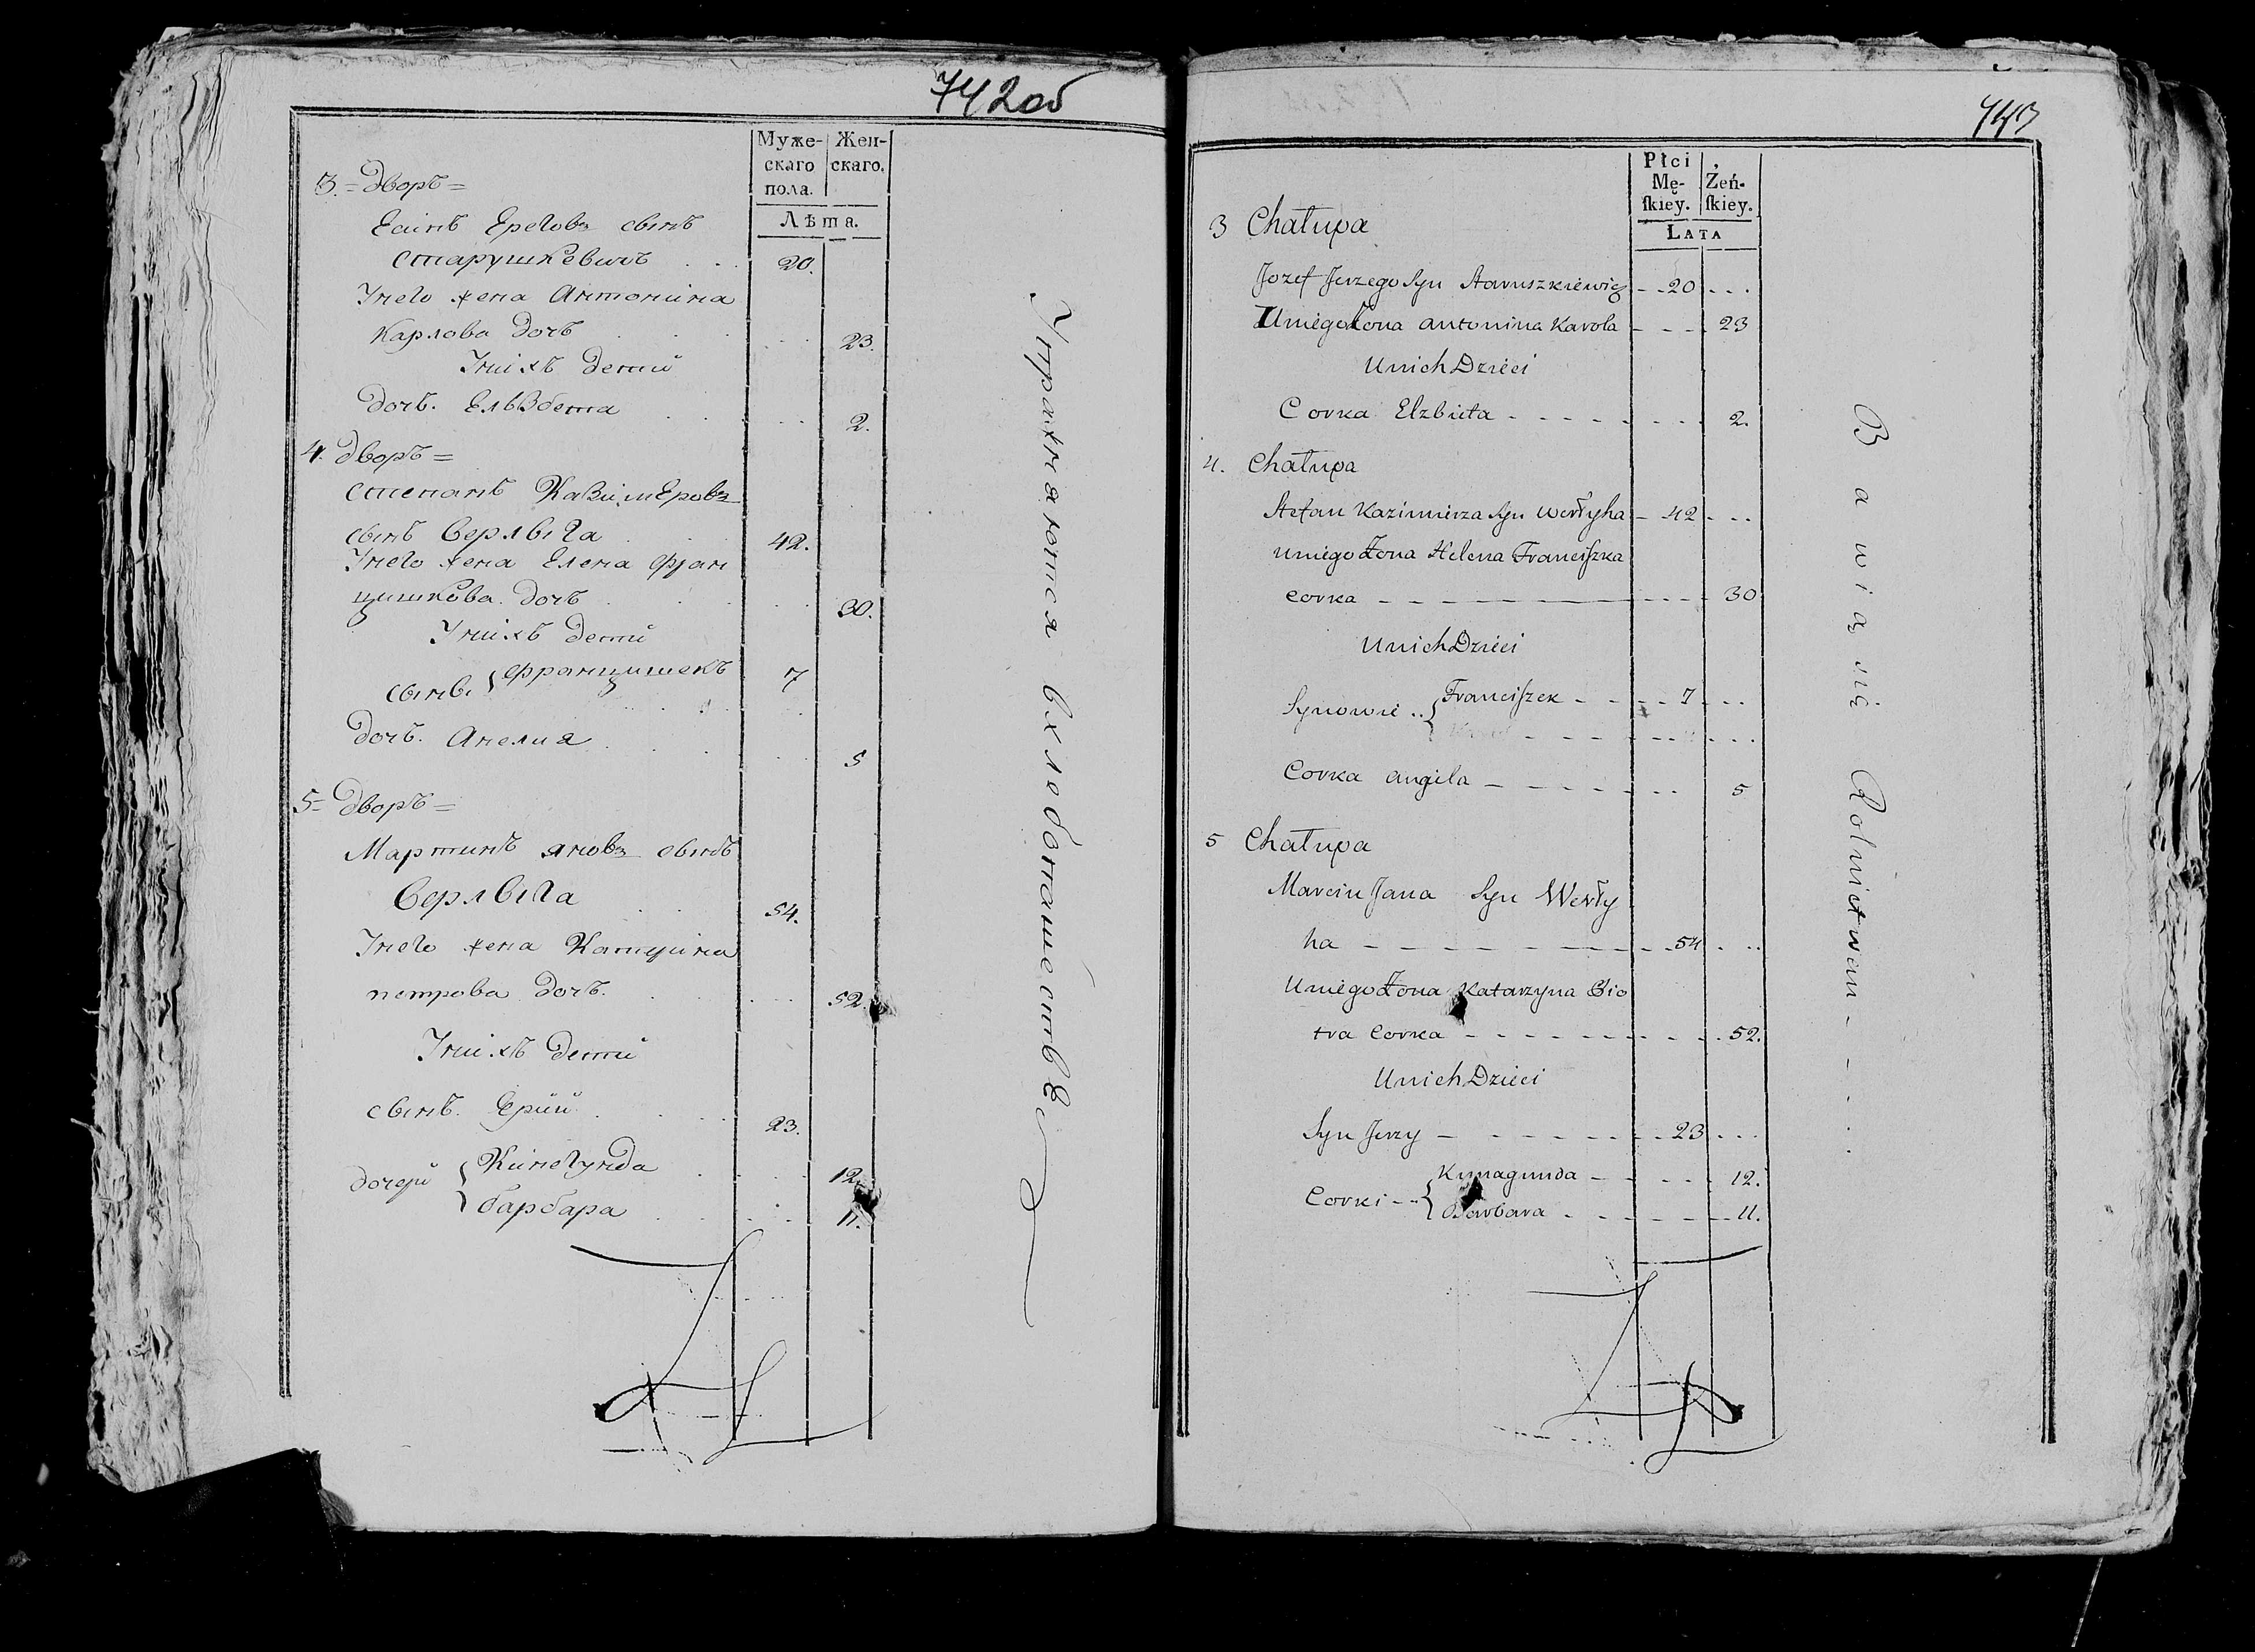 742об
Муже-
скаго
пола.
Жен-
скаго.
Лѣта.
3. = дворъ =
сынъ
Старушкевичъ . . . 20.
Унего жена Антонина
Карлова дочь . . . 23.
Унихъ детий
дочь. Ельзбета . . . 2.
4. дворъ =
Степанъ Казимеровъ
сынъ Верлыга . . 42.
Унего жена Елена Фран
цишкова дочь . . . 30.
Унихъ детий
сынъ { Францишекъ 7
дочь. Анелия . . . 5
5 = дворъ =
Мартинъ яновъ сынъ
Верлыга . . 54.
Унего жена Катерина
петрова дочь. . . . 52.
Унихъ детий
сынъ. Ерий . . . 23.
дочери { Кинегунда . . . 12.
барбара . . . 11.
Упражняются вхлебопашествѣ
743
Płci
Mę-
ſkiey.
Żeń-
ſkiey.
LATA
3 Chałupa
Jozef Jerzego Syn Staruszkiewicz - - 20 . . .
Uniego Żona antonina Karola - - - - 23
Unich Dzieci
Corka Elzbieta - - - - - - - 2.
4. Chałupa
Stefan Kazimierza Syn Werłyha - 42 . . .
uniego Żona Helena Franciſzka
corka - - - - - - - 30
Unich Dzieci
Synowie .. { Franciſzek - - - - 7 . . .
Corka angela - - - - - - 5
5 Chałupa
Marcin Jana Syn Werły
ha - - - - - - - 54 . . .
Uniego Żona Katarzyna Pio
tra Corka - - - - - - - 52.
Unich Dzieci
Syn Jerzy - - - - - - - 23 . . .
Corki - - { Kunagunda - - - - - 12.
Barbara - - - - - - 11.
Bawią się Rolnictwem - - - . . .